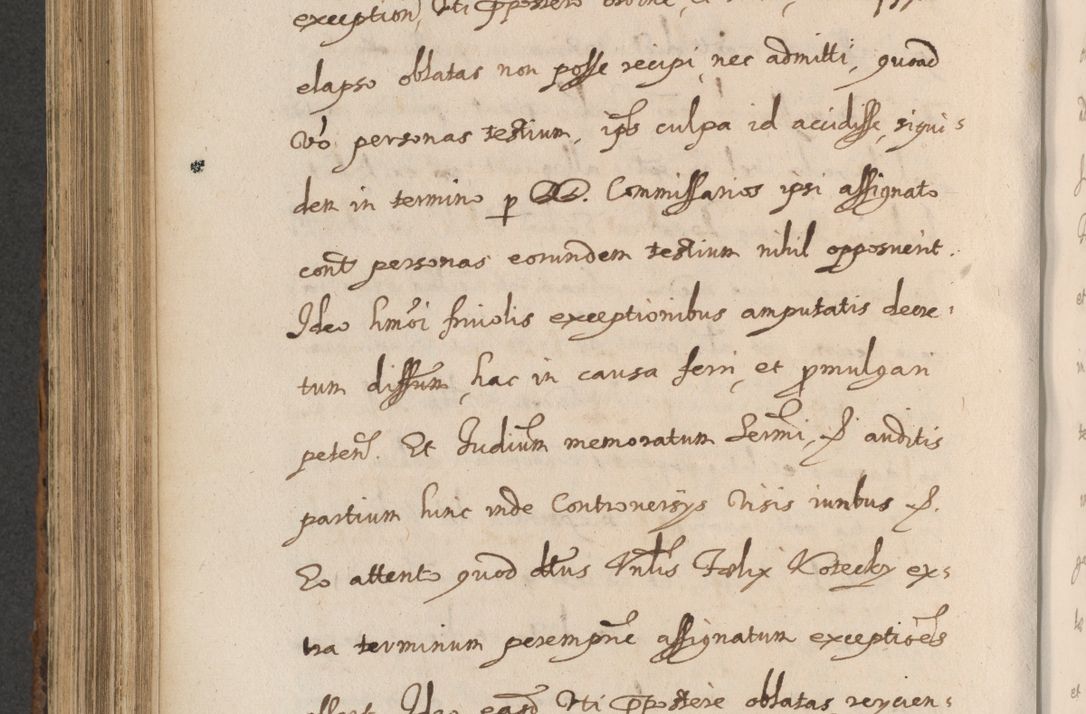 exception, Uti ppostero ordine,
elapso oblatas non posse recipi, nec admitti, quoad
vo personas testium, ips culpa id accidisse, siqui-
dem in termino p DD. Commissarios ipsi assignato
cont personas eorundem testium nihil opposuerit.
Ideo hmoi friuolis exceptionibus amputatis decre-
tum diffum, hac in causa ferri, et pmulgari
peten. Et Iudium memoratum Sermi, &. auditis
partium hinc inde Controuersijs visis iuribus &.
Eo attento quod dtus Nnlis Fælix Kotecky ex-
tra terminum perempne assignatum exceptiões
Ideo easd Uti ppostere oblatas reycien-